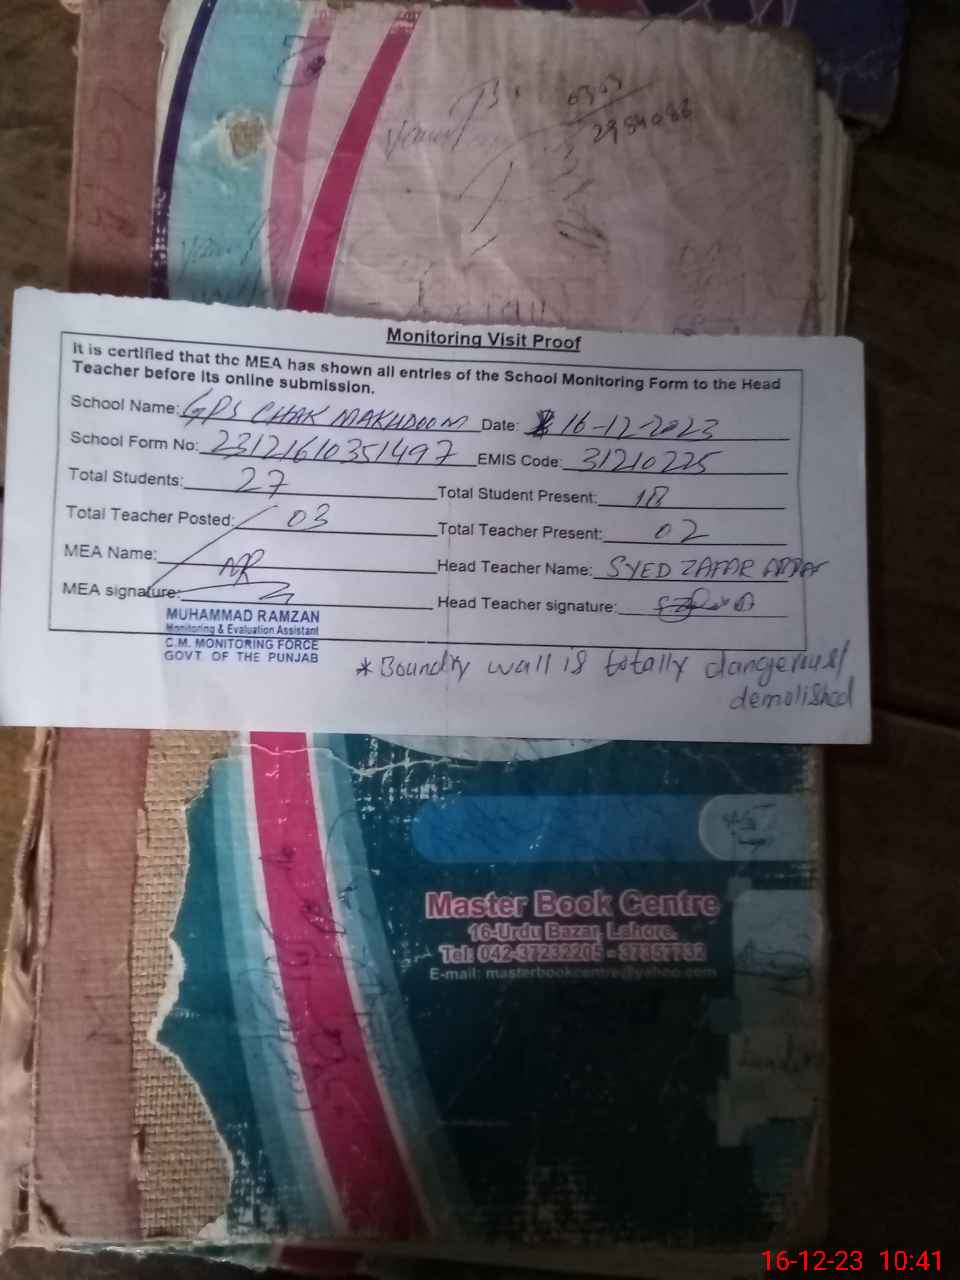 0303
2954086
Monitoring Visit Proof
It is certified that the MEA has shown all entries of the School Monitoring Form to the Head
Teacher before its online submission.
School Name: GPS CHAK MAKHDOOM Date: 16-12-2023
School Form No: 23121610351497 EMIS Code: 31210225
Total Students: 27 Total Student Present: 18
Total Teacher Posted: 03 Total Teacher Present: 02
MEA Name: MR Head Teacher Name: SYED ZAFAR
MEA signature: Head Teacher signature:
MUHAMMAD RAMZAN
Monitoring & Evaluation Assistant
C.M. MONITORING FORCE
GOVT. OF THE PUNJAB
*Boundry wall is totally dangerous/
demolished
Master Book Centre
16-Urdu Bazar, Lahore.
Tel: 042-37232205 - 37357732
E-mail: masterbookcentre@yahoo.com
16-12-23 10:41